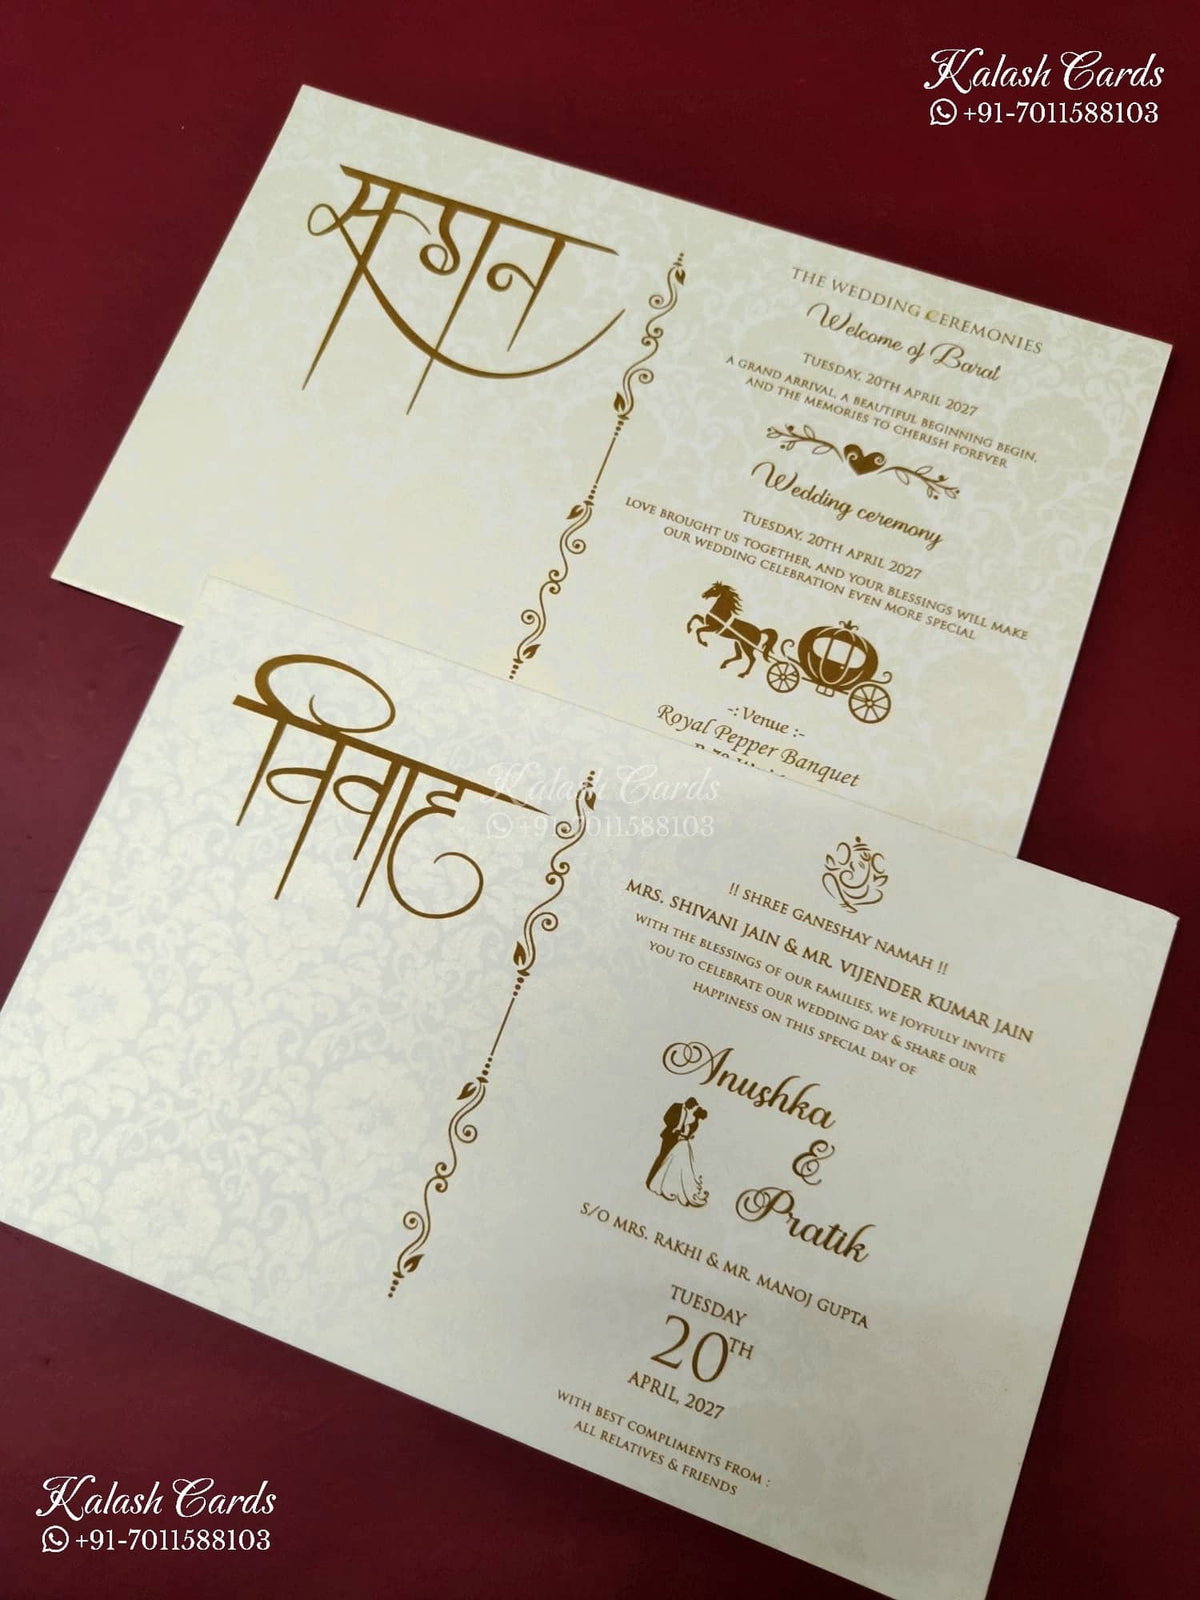 Kalash Cards
+91-7011588103
सगुन
THE WEDDING CEREMONIES
Welcome of Barat
TUESDAY, 20TH APRIL 2027
A GRAND ARRIVAL, A BEAUTIFUL BEGINNING BEGIN,
AND THE MEMORIES TO CHERISH FOREVER
Wedding ceremony
TUESDAY, 20TH APRIL 2027
LOVE BROUGHT US TOGETHER, AND YOUR BLESSINGS WILL MAKE
OUR WEDDING CELEBRATION EVEN MORE SPECIAL
-: Venue :-
Royal Pepper Banquet
विवाह
Kalash Cards
+91-7011588103
!! SHREE GANESHAY NAMAH !!
MRS. SHIVANI JAIN & MR. VIJENDER KUMAR JAIN
WITH THE BLESSINGS OF OUR FAMILIES, WE JOYFULLY INVITE
YOU TO CELEBRATE OUR WEDDING DAY & SHARE OUR
HAPPINESS ON THIS SPECIAL DAY OF
Anushka
&
Pratik
S/O MRS. RAKHI & MR. MANOJ GUPTA
TUESDAY
20TH
APRIL, 2027
WITH BEST COMPLIMENTS FROM :
ALL RELATIVES & FRIENDS
Kalash Cards
+91-7011588103